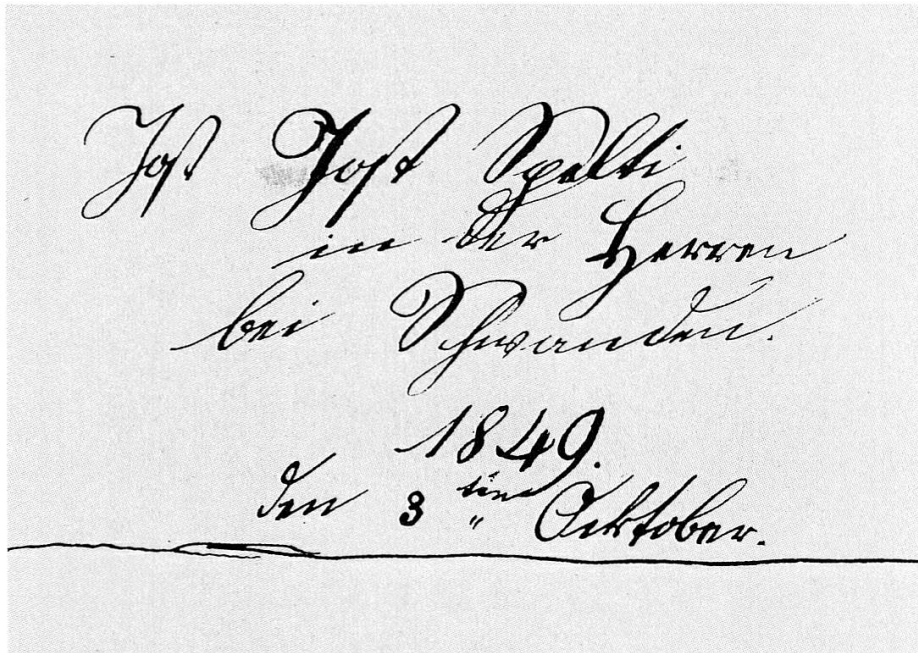 Jost Jost Spelti
in der Herren
bei Schwanden.
1849.
den 3 ten Ocktober.